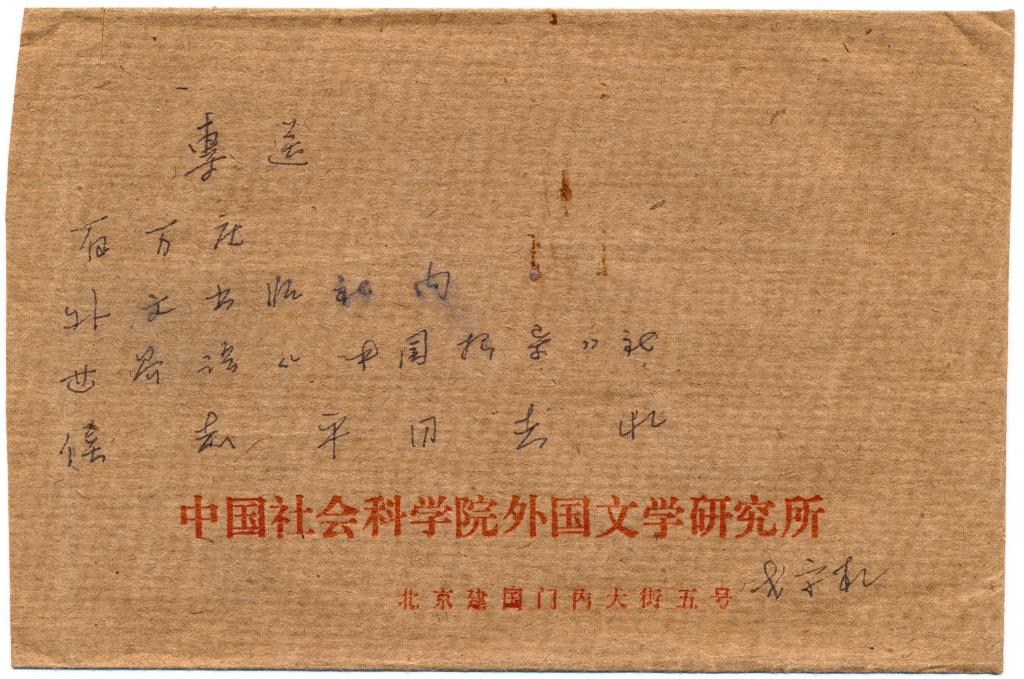 專送
百万庄
外文出版社内
世界语《中国报导》社
侯志平同志收
中国社会科学院外国文学研究所
北京建国门内大街五号 戈宝权